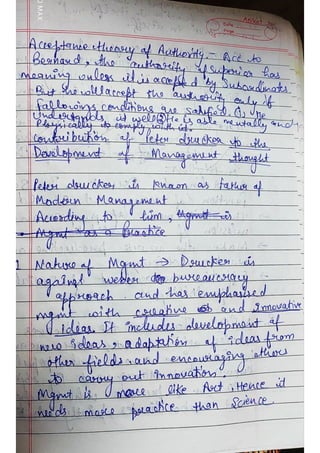 Acceptance theory of Authority - Acc to
Bernard, the authority of superior has
meaning unless it is accept by subordinates.
But she will accept the authority only if
following conditions are satisfied. (1) He
understands it well (2) He is able mentally and
Physically to comply with it.
Contribution of Peter drucker to the
Development of Management thought
Peter drucker is known as father of
Modern Management
According to him, Mgmt is
Mgmt as a Practice
1 Nature of Mgmt → Drucker is
against weber bureaucracy
approach and has emphasised
mgmt with creative and Innovative
Ideas. It includes development of
new ideas, adaptation of ideas from
other fields and encouraging others
to carry out innovation.
Mgmt is more like Art, Hence it
needs more practice than Science